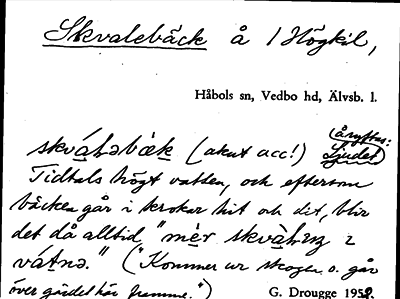 Skvalebäck å / Högkil,
Håbols sn, Vedbo hd, Älvsb. l.
(åsyftas:
skvàləbäk (akut acc!) Ljudet)
Tidtals högt vatten, och eftersom
bäcken går i krokar hit och dit, blir
det då alltid "mèr skvàlıŋ i
vátnə." ("Kommer ur skogen o. går
över gärdet här framme.") G. Drougge 1952.